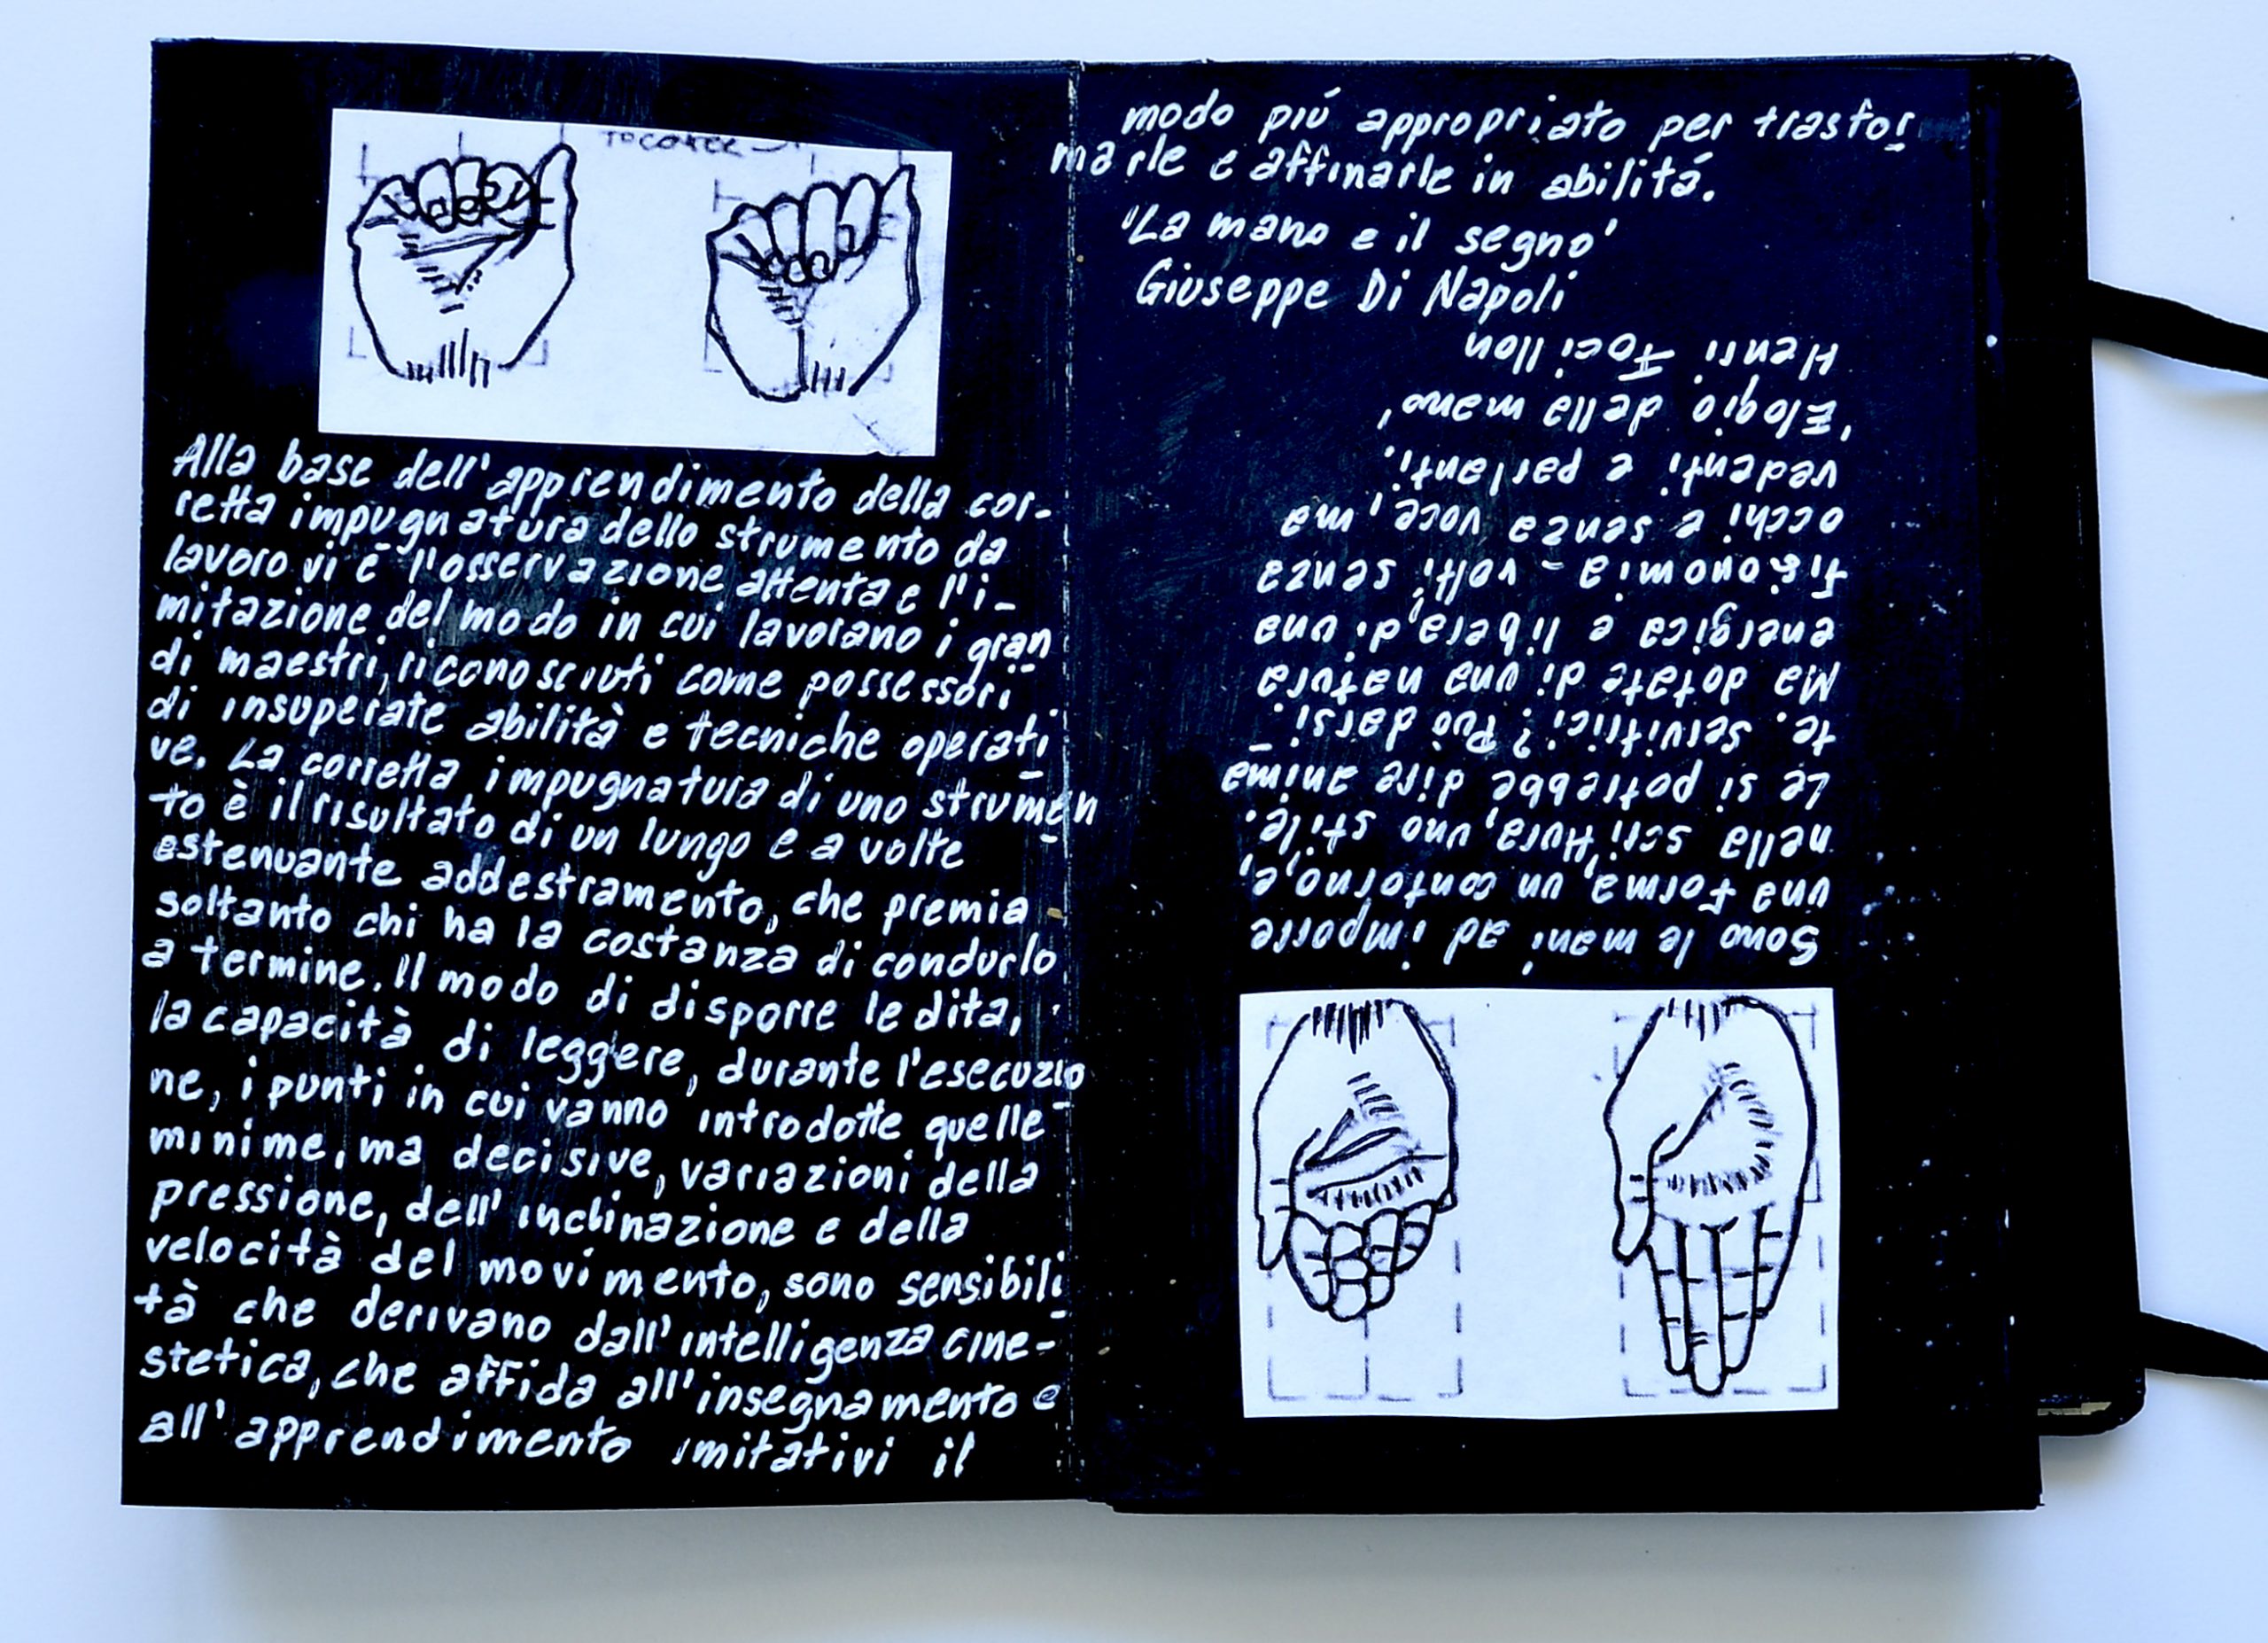 Alla base dell'apprendimento della cor-
retta impugnatura dello strumento da
lavoro vi è l'osservazione attenta e l'i-
mitazione del modo in cui lavorano i gran
di maestri, riconosciuti come possessori
di insuperate abilità e tecniche operati
ve. La corretta impugnatura di uno strumen
to è il risultato di un lungo e a volte
estenuante addestramento, che premia
soltanto chi ha la costanza di condurlo
a termine. Il modo di disporre le dita,
la capacità di leggere, durante l'esecuzio
ne, i punti in cui vanno introdotte quelle
minime, ma decisive, variazioni della
pressione, dell'inclinazione e della
velocità del movimento, sono sensibili
tà che derivano dall'intelligenza cine-
stetica, che affida all'insegnamento e
all'apprendimento imitativi il
modo piú appropriato per trasfor
marle e affinarle in abilitá.
'La mano e il segno'
Giuseppe Di Napoli
Sono le mani ad imporre
una forma, un contorno, e,
nella scrittura, uno stile.
Le si potrebbe dire anima
te. servitrici? Può darsi.
Ma dotate di una natura
energica e libera, di una
fisionomia - volti senza
occhi e senza voce, ma
vedenti e parlanti.
'Elogio della mano'
Henri Focillon